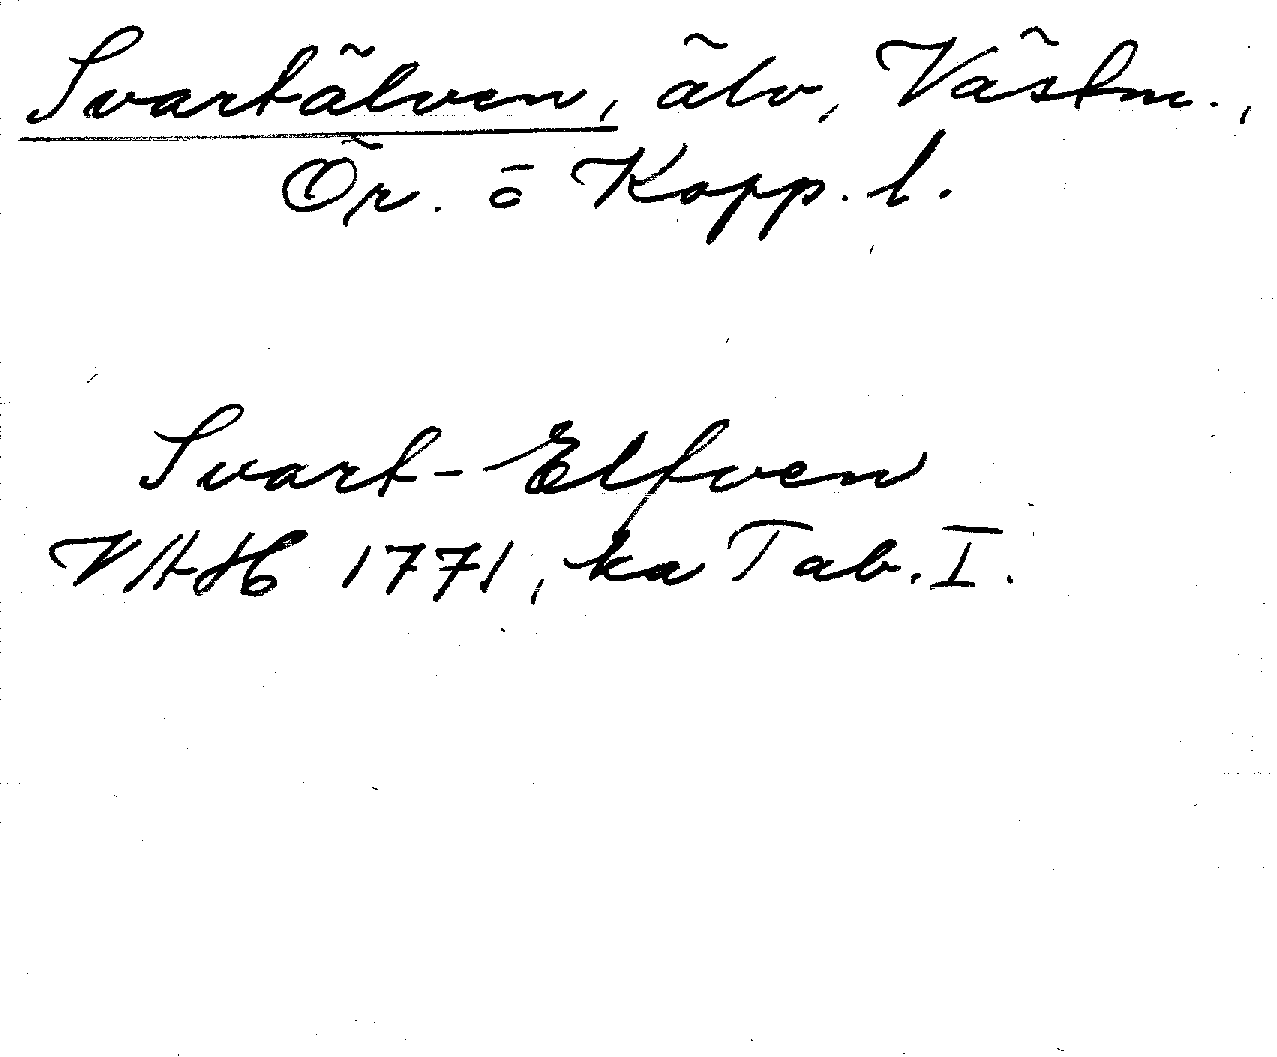 Svartälven, älv, Västm.,
Ör. o Kopp. l.
Svart-Elfven
VAH 1771, ka Tab. I.